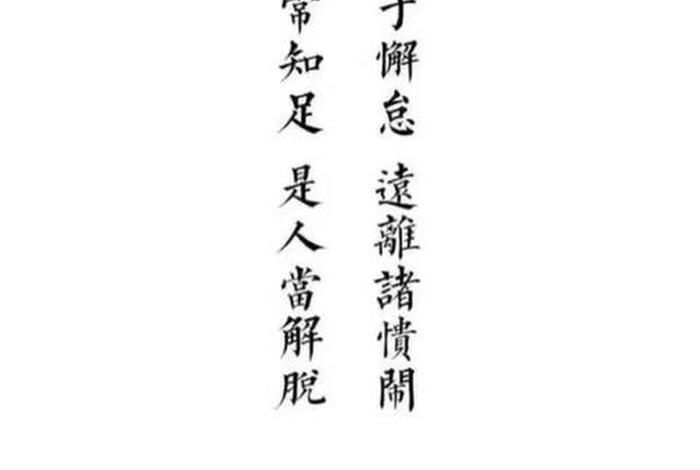 于懈怠 遠離諸憒鬧
常知足 是人當解脫